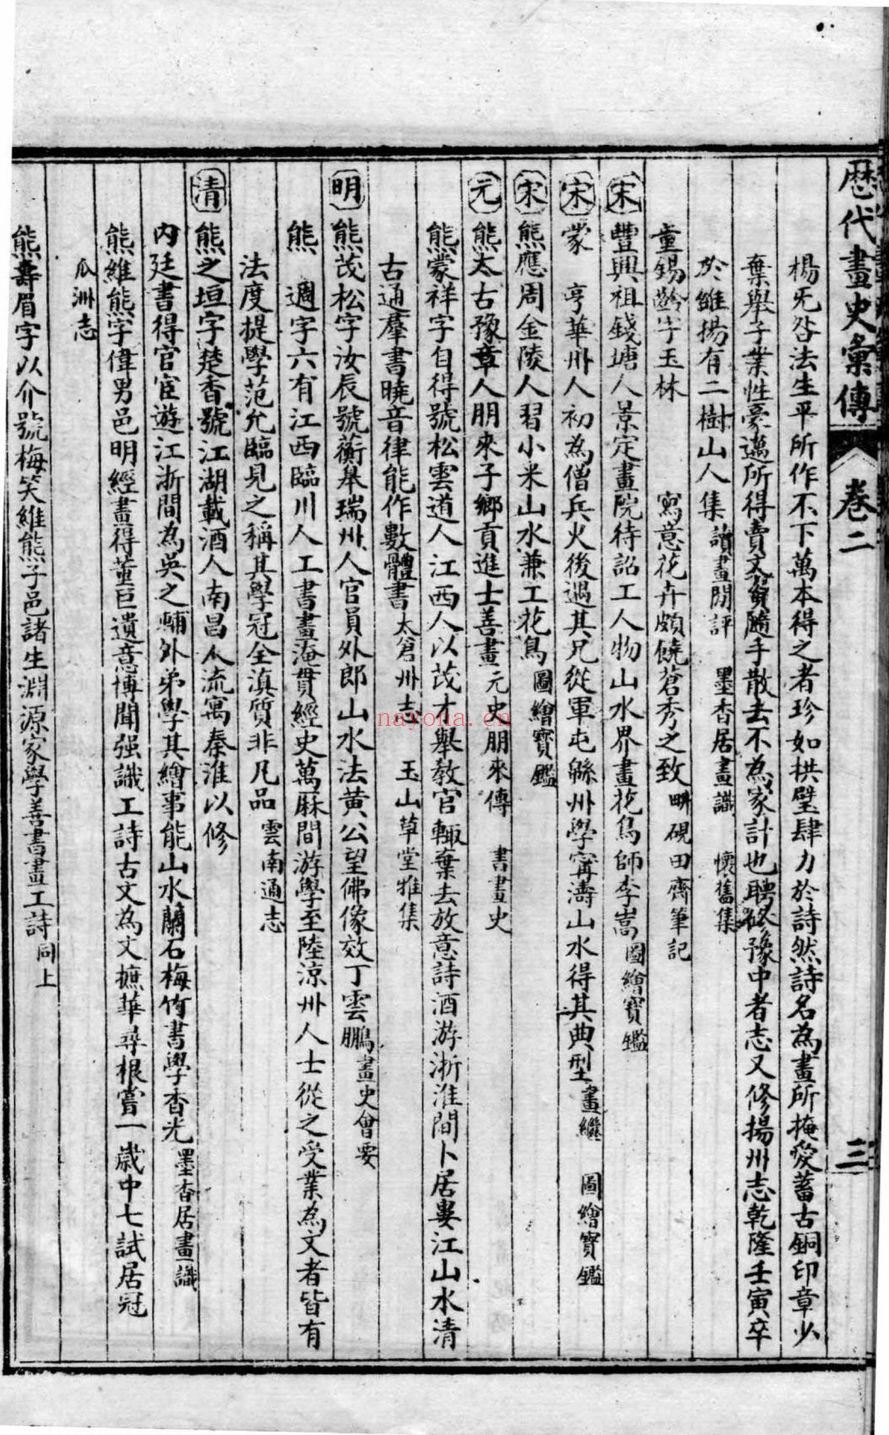 歷代畫史彙傳 卷二 三
楊无咎法生平所作不下萬本得之者珍如拱璧肆力於詩然詩名為畫所掩愛蓄古銅印章少
棄舉子業性豪邁所得賣文貲隨手散去不為家計也聘修豫中者志又修揚州志乾隆壬寅卒
於維揚有二樹山人集 讀畫閒評 墨香居畫識 懷舊集
童錫齡字玉林 寫意花卉頗饒蒼秀之致 畊硯田齋筆記
宋 豐興祖錢塘人景定畫院待詔工人物山水界畫花鳥師李嵩 圖繪寶鑑
宋 蒙 亨華州人初為僧兵火後遇其兄從軍屯緜州學甯濤山水得其典型 畫繼 圖繪寶鑑
宋 熊應周金陵人習小米山水兼工花鳥 圖繪寶鑑
元 熊太古豫章人朋來子鄉貢進士善畫 元史朋來傳 書畫史
熊蒙祥字自得號松雲道人江西人以茂才舉教官輙棄去放意詩酒游浙淮間卜居婁江山水清
古通羣書曉音律能作數體書 太倉州志 玉山草堂雅集
明 熊茂松字汝辰號蘅皋瑞州人官員外郎山水法黃公望佛像效丁雲鵬 畫史會要
熊 週字六有江西臨川人工書畫淹貫經史萬厤間游學至陸涼州人士從之受業為文者皆有
法度提學范允臨見之稱其學冠全滇質非凡品 雲南通志
清 熊之垣字楚香號江湖載酒人南昌人流寓秦淮以修
內廷書得官宦遊江浙間為吳之黼外弟學其繪事能山水蘭石梅竹書學香光 墨香居畫識
熊維熊字偉男邑明經畫得董巨遺意博聞强識工詩古文為文摭華尋根嘗一歲中七試居冠
瓜洲志
熊壽眉字以介號梅笑維熊子邑諸生淵源家學善書畫工詩 同上
nayona.cn